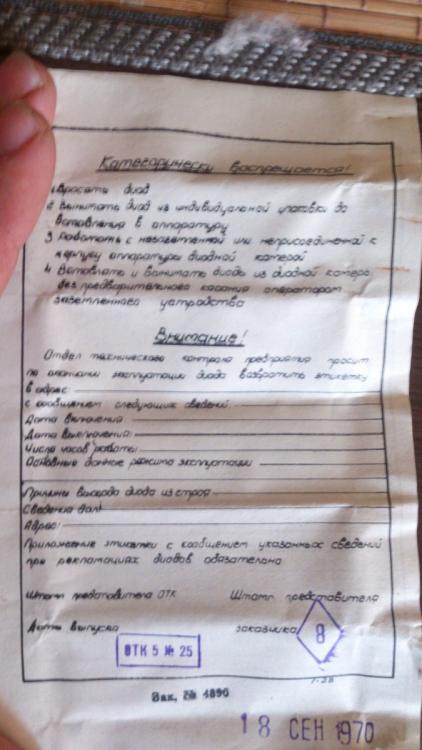 Категорически воспрещается!
1 Бросать диод
2 Вынимать диод из индивидуальной упаковки до
вставления в аппаратуру
3 Работать с незаземленной или неприсоединенной к
корпусу аппаратуры диодной камерой
4 Вставлять и вынимать диоды из диодной камеры
без предварительного касания оператором
заземленного устройства
Внимание!
Отдел технического контроля предприятия просит
по окончании эксплуатации диода возвратить этикетку
в адрес
с сообщением следующих сведений
Дата включения
Дата выключения:
Число часов работы
Основные данные режима эксплуатации
Причины выхода диода из строя
Сведения дал
Адрес:
Приложение этикетки с сообщением указанных сведений
при рекламациях диодов обязательно
Штамп представителя ОТК Штамп представителя
Дата выпуска заказчика 8
ОТК 5 № 25
Зак. № 4890
18 СЕН 1970